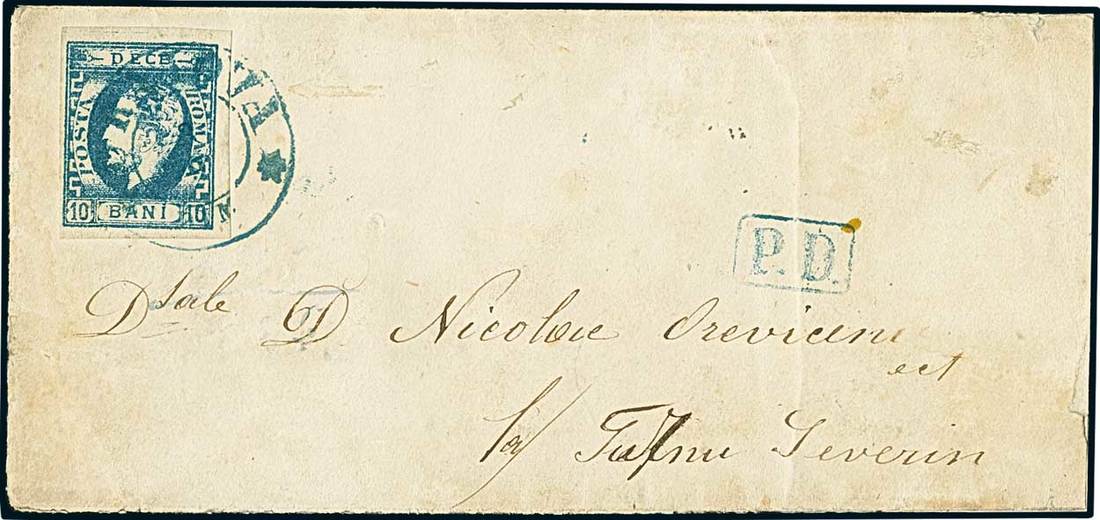 DECE
POSTA
ROMANA
10 BANI 10
P.D.
Dsale D Nicolae
ect
la/ Turnu Severin